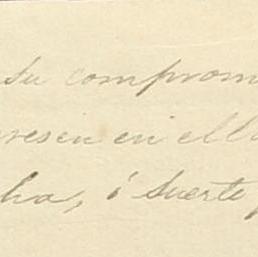 su comprom
resen en ell
ha, ó suerte